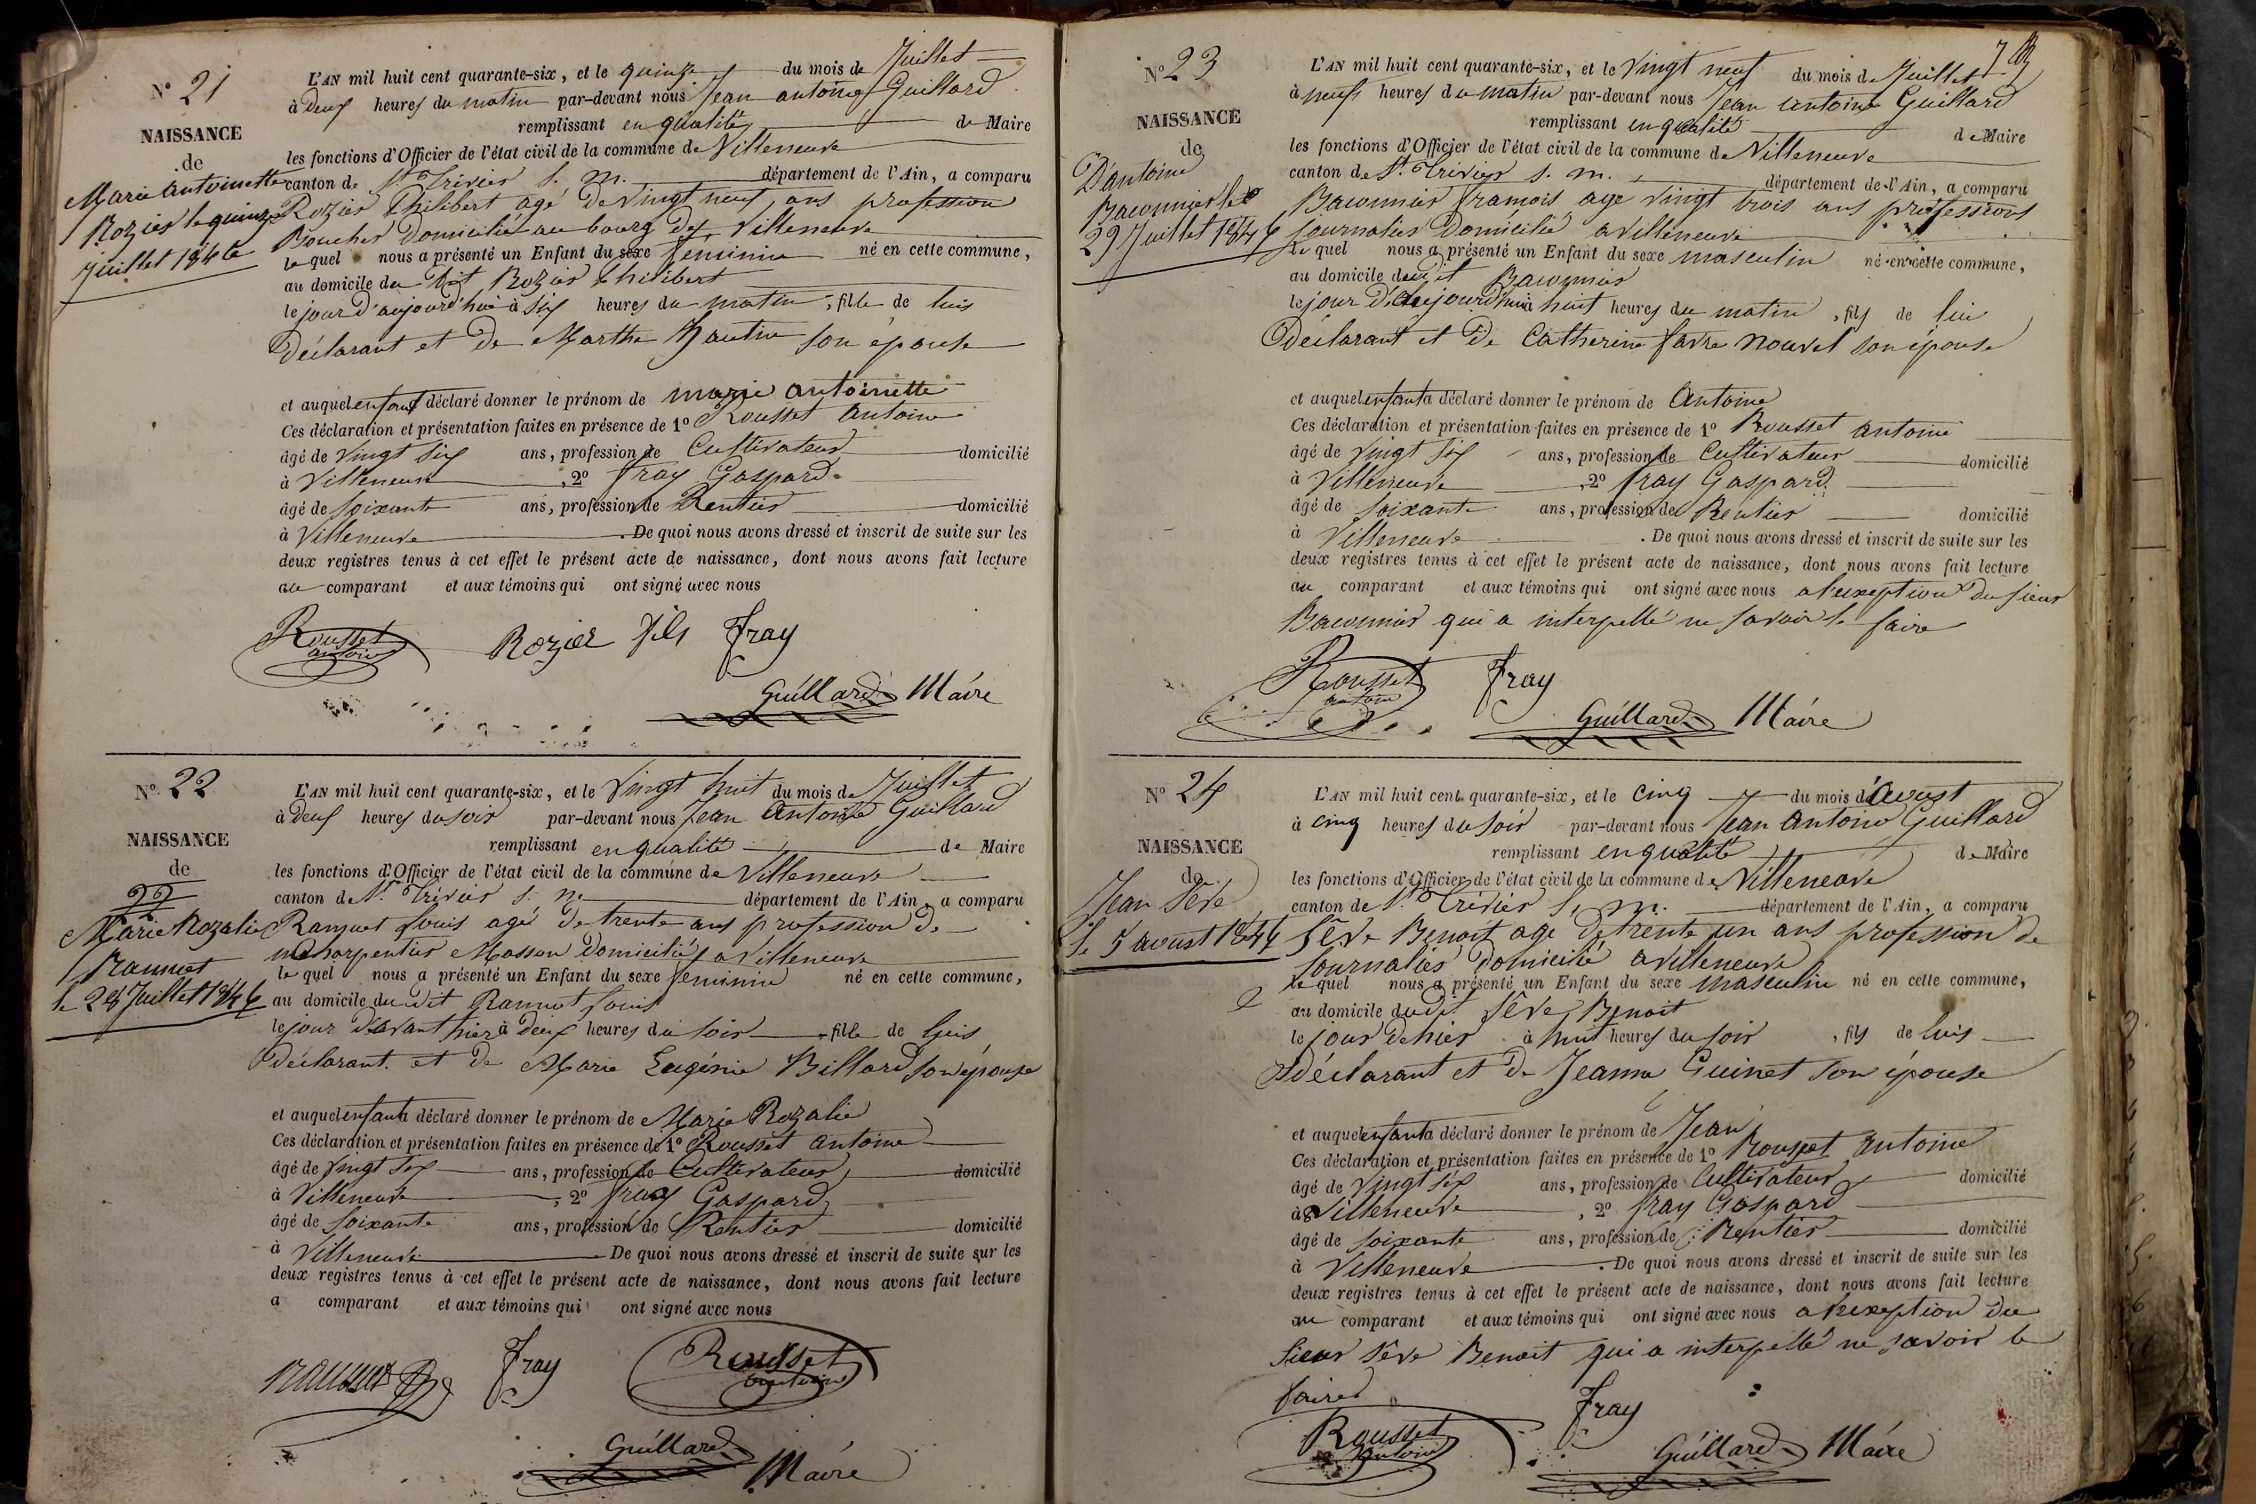 N° 21
NAISSANCE
de
Marie Antoinette
Rozier le quinze
Juillet 1846
L'AN mil huit cent quarante-six, et le quinze du mois de Juillet
à deux heures du matin par-devant nous Jean antoine Guillard
remplissant en qualité de Maire
les fonctions d'Officier de l'état civil de la commune de Villeneuve
canton de St. Trivier s. m. département de l'Ain, a comparu
Rozier Philibert agé de vingt neuf ans profession
Boucher Domicilié au bourg de Villeneuve
le quel nous a présenté un Enfant du sexe feminin né en cette commune,
au domicile du dit Rozier Philibert
le jour d'aujourd'hui à six heures du matin, fille de luis
Déclarant et de Marthe son épouse
et auquel enfant déclaré donner le prénom de marie antoinette
Ces déclaration et présentation faites en présence de 1° Rousset antoine
âgé de vingt six ans, profession de Cultivateur domicilié
à Villeneuve, 2° fray Gaspard
âgé de soixante ans, profession de Rentier domicilié
à Villeneuve. De quoi nous avons dressé et inscrit de suite sur les
deux registres tenus à cet effet le présent acte de naissance, dont nous avons fait lecture
au comparant et aux témoins qui ont signé avec nous
Rousset antoine Rozier fils fray
Guillard Maire
N° 22
NAISSANCE
de
22
Marie Rozalie
Ranuet
le 28 Juillet 1846
L'AN mil huit cent quarante-six, et le vingt huit du mois de Juillet
à deux heures du soir par-devant nous Jean Antoine Guillard
remplissant en qualité de Maire
les fonctions d'Officier de l'état civil de la commune de Villeneuve
canton de St. Trivier s. m. département de l'Ain, a comparu
Ranuet Louis agé de trente ans profession de
charpentier Masson domicilié a Villeneuve
le quel nous a présenté un Enfant du sexe feminin né en cette commune,
au domicile du dit Ranuet Louis
le jour d'avant hier à deux heures du soir, fille de luis
déclarant et de Marie Eugénie Billard son épouse
et auquel enfant a déclaré donner le prénom de Marie Rozalie
Ces déclaration et présentation faites en présence de 1° Rousset antoine
âgé de vingt six ans, profession de Cultivateur domicilié
à Villeneuve, 2° fray Gaspard
âgé de soixante ans, profession de Rentier domicilié
à Villeneuve De quoi nous avons dressé et inscrit de suite sur les
deux registres tenus à cet effet le présent acte de naissance, dont nous avons fait lecture
a comparant et aux témoins qui ont signé avec nous
ranuet fray Rousset antoine
Guillard Maire
N° 23
NAISSANCE
de
D'antoine
Baconnier le
29 Juillet 1846
L'AN mil huit cent quarante-six, et le vingt neuf du mois de Juillet
à neuf heures du matin par-devant nous Jean antoine Guillard
remplissant en qualité de Maire
les fonctions d'Officier de l'état civil de la commune de Villeneuve
canton de St. Trivier s. m. département de l'Ain, a comparu
Baconnier françois age vingt trois ans profession
Journalier Domicilié a Villeneuve
le quel nous a présenté un Enfant du sexe masculin né en cette commune,
au domicile du dit Baconnier
le jour d'aujourd'hui à huit heures du matin, fils de lui
Déclarant et de Catherine favre nouvel son épouse
et auquel enfant a déclaré donner le prénom de Antoine
Ces déclaration et présentation faites en présence de 1° Rousset antoine
âgé de vingt six ans, profession de Cultivateur domicilié
à Villeneuve, 2° fray Gaspard
âgé de soixante ans, profession de Rentier domicilié
à Villeneuve. De quoi nous avons dressé et inscrit de suite sur les
deux registres tenus à cet effet le présent acte de naissance, dont nous avons fait lecture
au comparant et aux témoins qui ont signé avec nous a l'exception du sieur
Baconnier qui a interpellé ne savoir le faire
Rousset antoine fray
Guillard Maire
N° 24
NAISSANCE
de
Jean Sève
le 5 avoust 1846
L'AN mil huit cent quarante-six, et le cinq du mois d'Avoust
à cinq heures du soir par-devant nous Jean Antoine Guillard
remplissant en qualité de Maire
les fonctions d'Officier de l'état civil de la commune de Villeneuve
canton de St. Trivier s. m. département de l'Ain, a comparu
Sève Benoit age de trente un ans profession de
Journalier Domicilié a Villeneuve
le quel nous a présenté un Enfant du sexe masculin né en cette commune,
au domicile du dit Sève Benoit
le jour de hier à huit heures du soir, fils de luis
déclarant et de Jeanne Guinet son épouse
et auquel enfant a déclaré donner le prénom de Jean
Ces déclaration et présentation faites en présence de 1° Rousset antoine
âgé de vingt six ans, profession de Cultivateur domicilié
à Villeneuve, 2° fray Gaspard
âgé de soixante ans, profession de Rentier domicilié
à Villeneuve. De quoi nous avons dressé et inscrit de suite sur les
deux registres tenus à cet effet le présent acte de naissance, dont nous avons fait lecture
au comparant et aux témoins qui ont signé avec nous a l'exeption du
sieur Sève Benoit qui a interpellé ne savoir le
faire
Rousset Antoine fray
Guillard Maire